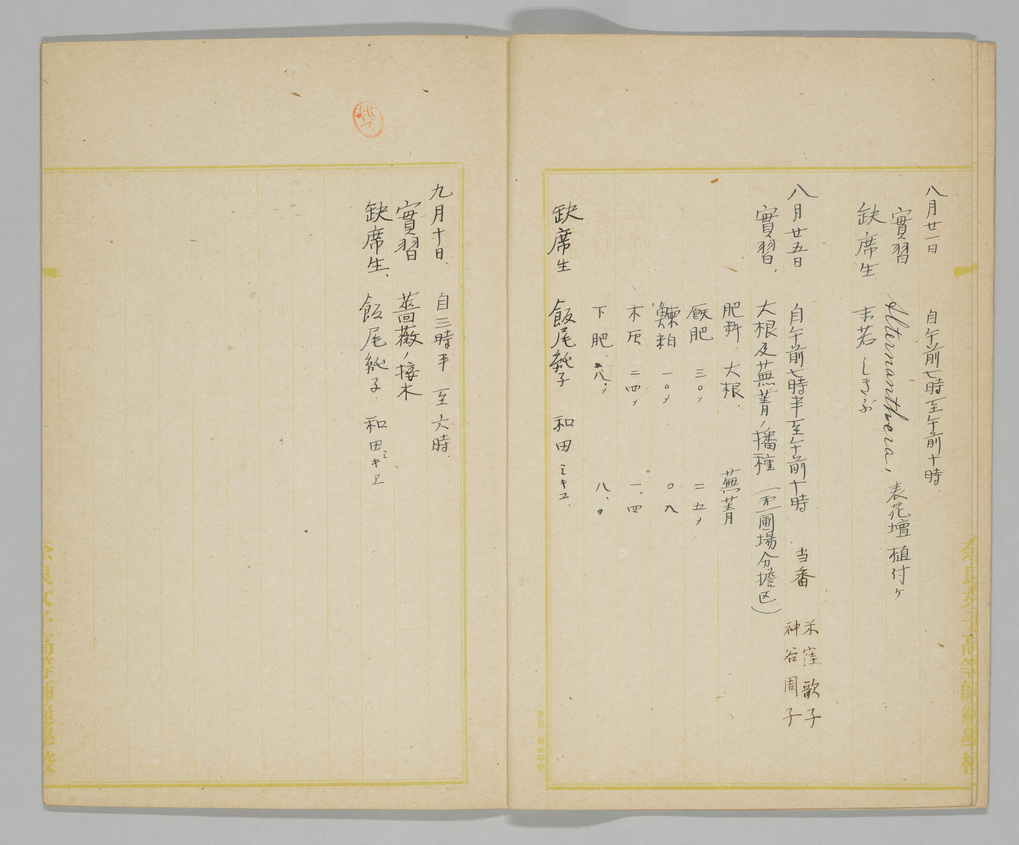 八月廿一日 自午前七時至午前十時.
實習 Alternanthera, 表花壇植付ケ
缺席生 末若しまぶ
八月廿五日 自午前七時半至午前十時 当番 米窪歌子
神谷周子
實習. 大根及蕪菁ノ播種(不二圃場分擔区)
肥料. 大根. 蕪菁
厩肥 三〇〃 二五〃
鰊粕 一〇〃 〇八
木灰 二四〃 一、四
下肥 八、〇
缺席生 飯尾純子 和田ミキヱ.
九月十日. 自三時半 至六時.
實習 薔薇ノ接木
缺席生. 飯尾純子. 和田ミキヱ
奈良女子高等師範學校
奈良女子高等師範學校